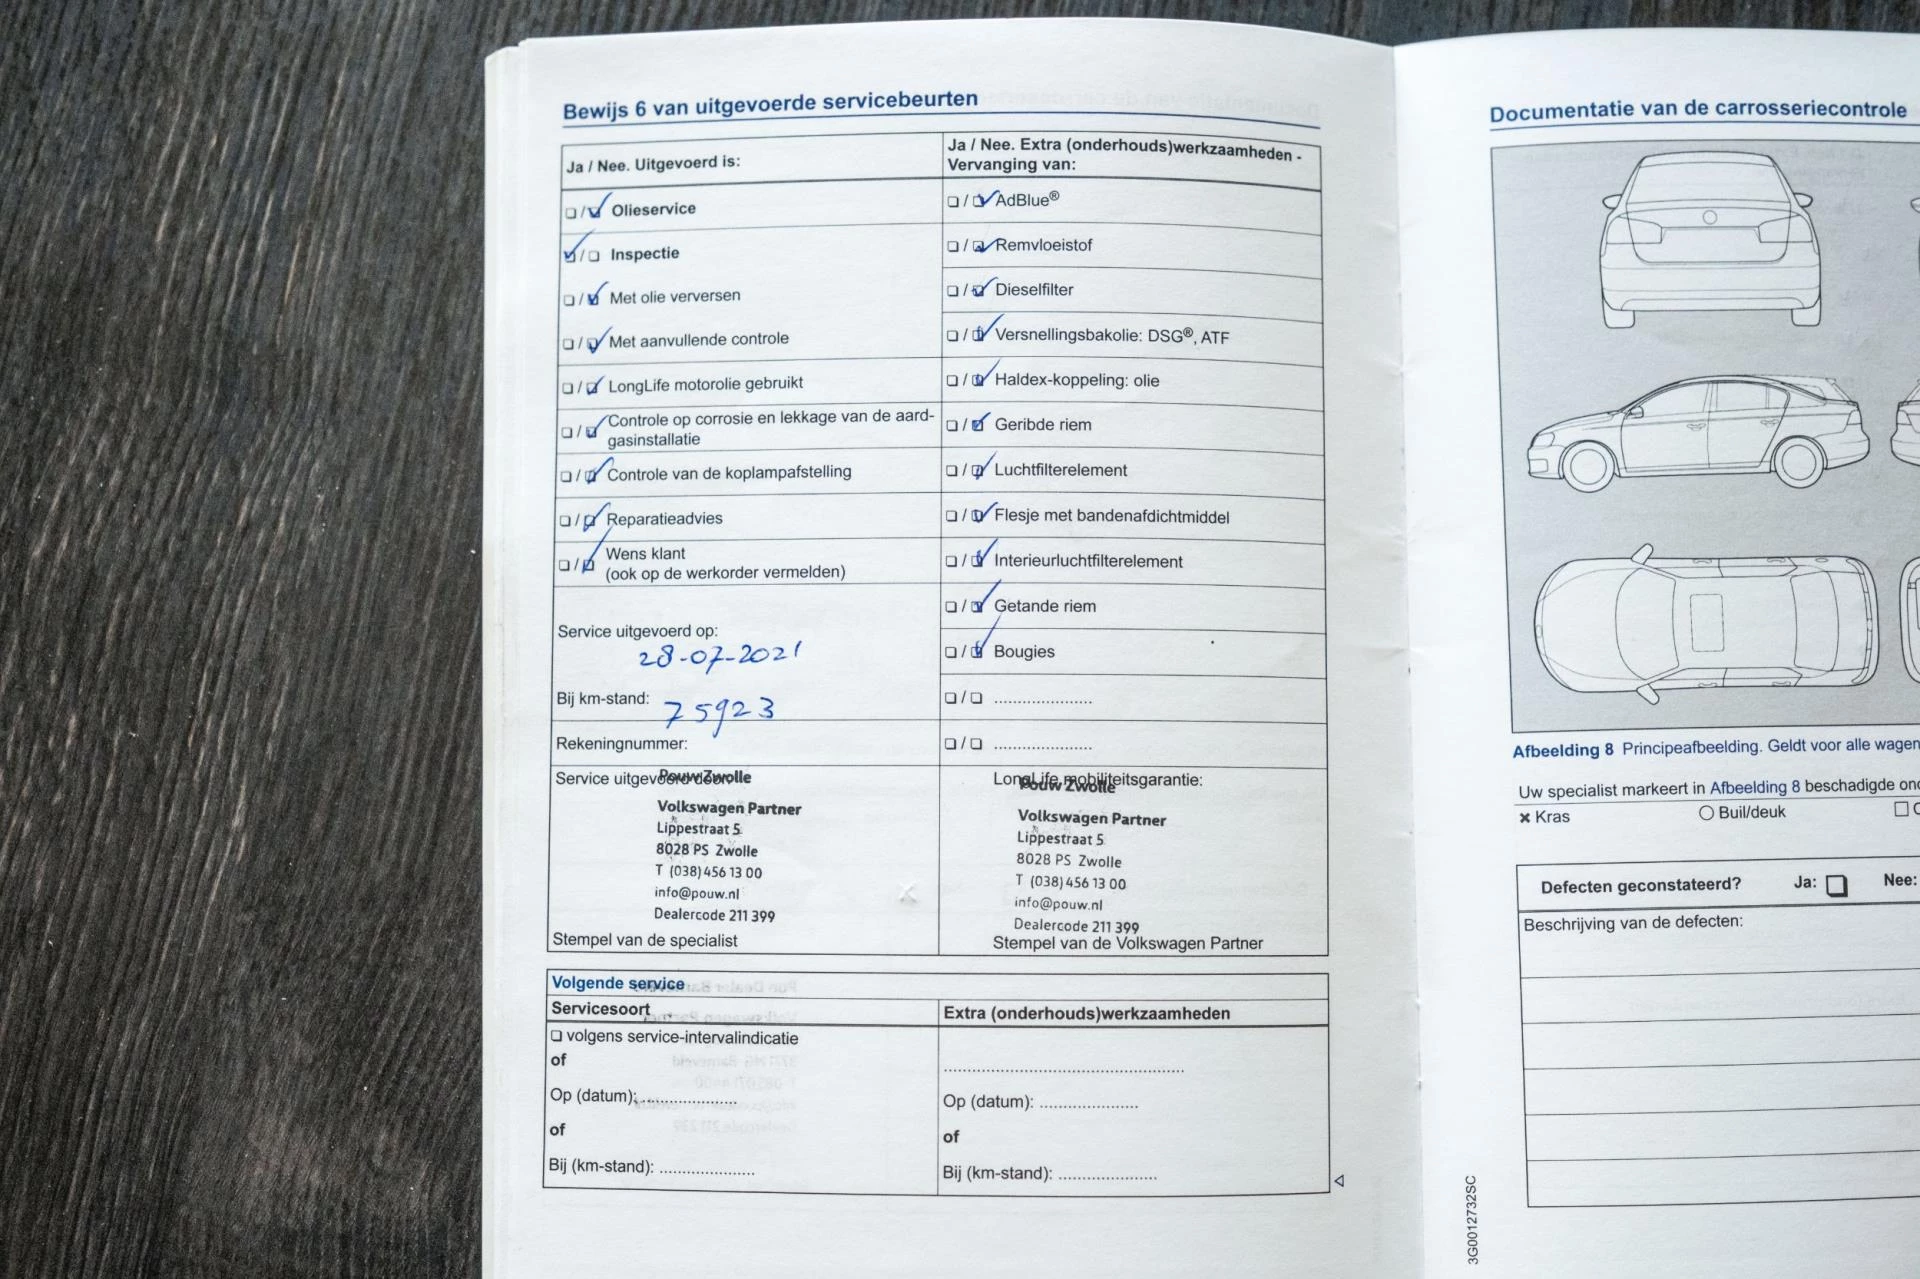 Bewijs 6 van uitgevoerde servicebeurten
Ja / Nee. Uitgevoerd is:
Olieservice
Inspectie
Met olie verversen
Met aanvullende controle
LongLife motorolie gebruikt
Controle op corrosie en lekkage van de aard-
gasinstallatie
Controle van de koplampafstelling
Reparatieadvies
Wens klant
(ook op de werkorder vermelden)
Service uitgevoerd op:
28-07-2021
Bij km-stand: 75923
Rekeningnummer:
Service uitgevoerd door:
Pouw Zwolle
Volkswagen Partner
Lippestraat 5
8028 PS Zwolle
T (038) 456 13 00
info@pouw.nl
Dealercode 211 399
Stempel van de specialist
Ja / Nee. Extra (onderhouds)werkzaamheden -
Vervanging van:
AdBlue®
Remvloeistof
Dieselfilter
Versnellingsbakolie: DSG®, ATF
Haldex-koppeling: olie
Geribde riem
Luchtfilterelement
Flesje met bandenafdichtmiddel
Interieurluchtfilterelement
Getande riem
Bougies
LongLife mobiliteitsgarantie:
Pouw Zwolle
Volkswagen Partner
Lippestraat 5
8028 PS Zwolle
T (038) 456 13 00
info@pouw.nl
Dealercode 211 399
Stempel van de Volkswagen Partner
Volgende service
Servicesoort
volgens service-intervalindicatie
of
Op (datum): ....................
of
Bij (km-stand): ....................
Extra (onderhouds)werkzaamheden
Op (datum): ....................
of
Bij (km-stand): ....................
Documentatie van de carrosseriecontrole
Afbeelding 8 Principeafbeelding. Geldt voor alle wagen
Uw specialist markeert in Afbeelding 8 beschadigde
Kras Buil/deuk
Defecten geconstateerd? Ja: Nee:
Beschrijving van de defecten:
3G0012732SC